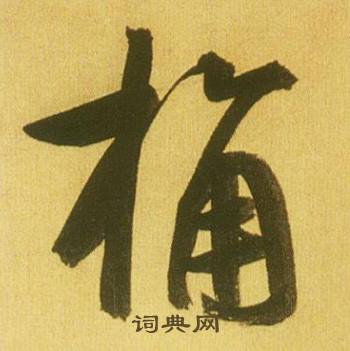 桶
词典网